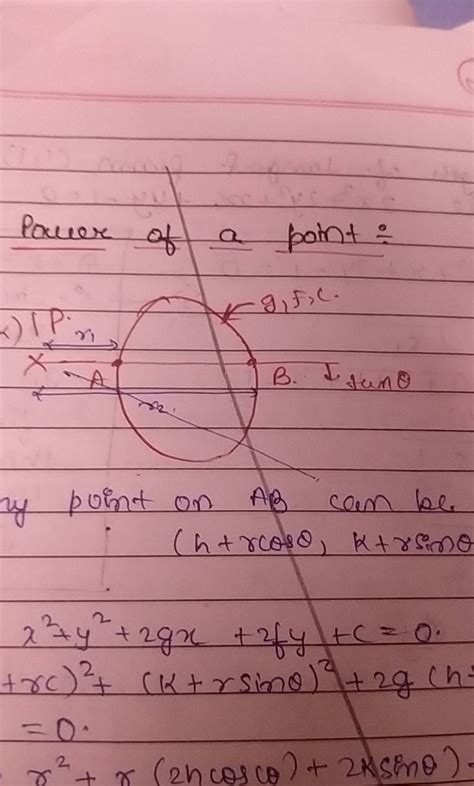 Power of a point ÷
g, f, c.
) P.
r₁
X
A
B.
↓ tanθ
r₂.
ny point on AB can be
(h + rcosθ, k + rsinθ
x² + y² + 2gx + 2fy + c = 0.
+ rc)² + (k + rsinθ)² + 2g (h +
= 0.
r² + r (2hcosθ) + 2ksinθ) -